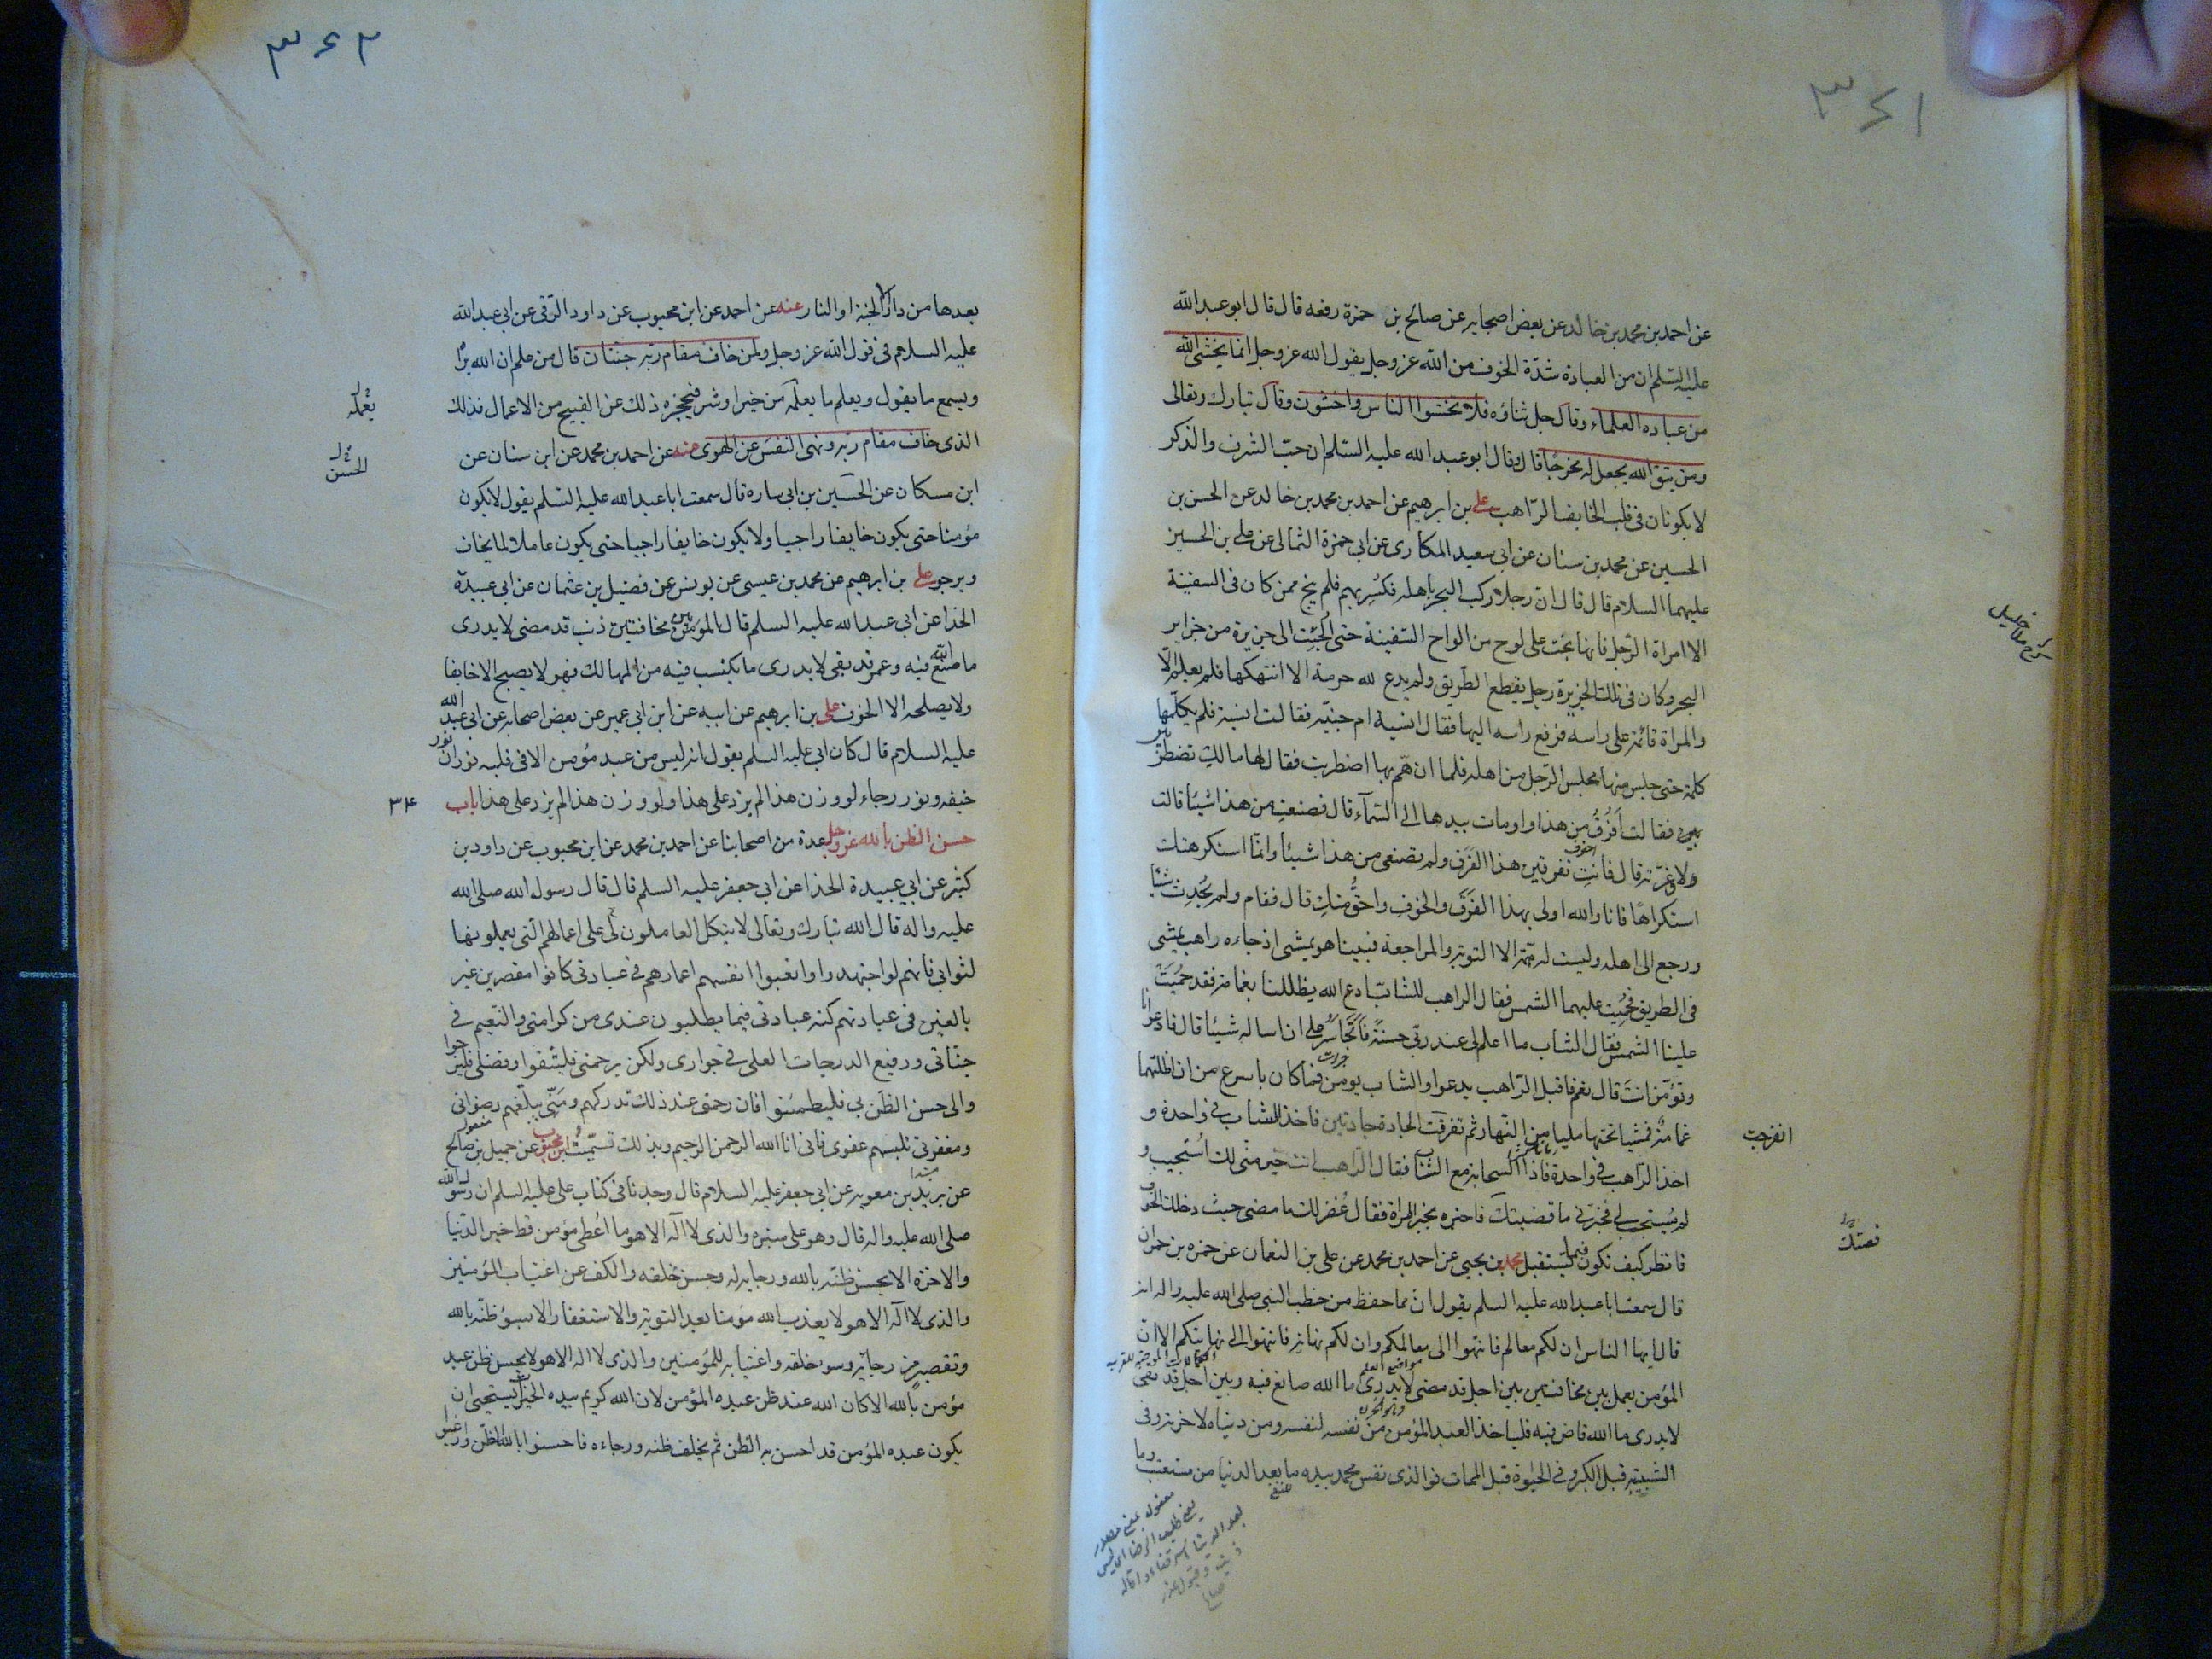 ٣٤١
عن احمد بن محمد بن خالد عن بعض اصحابه عن صالح بن حمزة رفعه قال قال ابو عبد الله
عليه السلم ان من العبادة شدّة الخوف من الله عز وجل يقول الله عز وجل انما يخشى الله
من عباده العلماء وقال جل ثناؤه فلا تخشوا الناس واخشون وقال تبارك وتعالى
ومن يتق الله يجعل له مخرجًا قال وقال ابو عبد الله عليه السلم ان حبّ الشرف والذكر
لا يكونان في قلب الخايف الرّاهب على بن ابرهيم عن احمد بن محمد بن خالد عن الحسن بن
الحسين عن محمد بن سنان عن ابي سعيد المكارى عن ابي حمزة الثمالى عن على بن الحسين
عليهما السلام قال قال ان رجلا ركب البحر باهله فكُسِر بهم فلم ينج ممن كان في السفينة
الا امراة الرّجل فانها نجت على لوح من الواح السّفينة حتى الجئت الى جزيرة من جزاير
البحر وكان في تلك الجزيرة رجل يقطع الطريق ولم يدع لله حرمة الا انتهكها فلم يعلم الّا
والمراة قائمة على راسه فرفع راسه اليها فقال انسية ام جنيّة فقالت انسية فلم يكلّمها
كلمة حتى جلس منها مجلس الرّجل من اهله فلما ان همّ بها اضطربت فقال لها مالكِ تضطر
بين فقالت اَفرُقُ من هذا واومات بيدها الى السّماء قال فصنعتِ من هذا شيئا قالت
لا وعزّته قال فانتِ تفرقين هذا الفَرَق ولم تصنعى من هذا شيئا وانّما استكرهتك
استكراهًا فانا والله اولى بهذا الفَرَق والخوفِ واحَقُّ منكِ قال فقام ولم يُحدِث شيئا
ورجع الى اهله وليست له همّة الا التوبة والمراجعة فبينا هو يمشى اذ جاءه راهب يمشى
في الطريق فحَمِيَت عليهما الشمس فقال الراهب للشابّ ادع الله يظللنا بغمامة فقد حَمِيَت
علينا الشمس فقال الشاب ما اعلم لى عند ربّى حسنةً فاَتَجاسَرُ على ان اساله شيئا قال فادعو انا
وتؤمّن انتَ قال نعم فاقبل الرّاهب يدعوا والشاب يومّن فما كان باسرع من ان اظلّتهما
غمامةٌ فمشيا تحتها مليا من النّهار ثم تفرقت الجادة جادتين فاخذ الشاب في واحدة و
اخذ الراهب في واحدة فاذا السحابة مع الشاب فقال الرّاهب انت خير منى لك اُستجيب و
لم يُستجب لى فخبّرنى ما قصّتك فاخبره بخبر المراة فقال غُفر لك ما مضى حيث دخلك الخوف
فانظر كيف تكون فيما تستقبل محمد بن يحيى عن احمد بن محمد عن على بن النعمان عن حمزه بن حمران
قال سمعت ابا عبد الله عليه السلم يقول انّ مما حفظ من خطب النبى صلى الله عليه واله انه
قال يا ايها الناس ان لكم معالم فانتهوا الى معالمكم وان لكم نهاية فانتهوا الى نهايتكم الا ان
المؤمن يعمل بين مخافتين بين اجل قد مضى لا يدرى ما الله صانع فيه وبين اجل قد بقى
لا يدرى ما الله قاض فيه فلياخذ العبد المؤمن من نفسه لنفسه ومن دنياه لاخرته وفى
الشبيبة قبل الكبر وفى الحيوة قبل الممات فوالذى نفس محمد بيده ما بعد الدنيا من مستعتب وما
انفرجت
قصتك
٣٤٢
بعدها من دار الا الجنة او النار عنه عن احمد عن ابن محبوب عن داود الرّقى عن ابى عبد الله
عليه السلام فى قول الله عز وجل ولمن خاف مقام ربّه جنّتان قال من علم ان الله يراه
ويسمع ما يقول ويعلم ما يعلمه من خير او شر فيحجزه ذلك عن القبيح من الاعمال فذلك
الذى خاف مقام ربّه ونهى النفسَ عن الهوى عنه عن احمد بن محمد عن ابن سنان عن
ابن مسكان عن الحسين بن ابى ساره قال سمعت ابا عبد الله عليه السّلم يقول لا يكون
مؤمنا حتى يكون خايفا راجيا ولا يكون خايفا راجيا حتى يكون عاملا لما يخاف
ويرجو على بن ابرهيم عن محمد بن عيسى عن يونس عن فضيل بن عثمان عن ابى عبيدة
الحذا عن ابى عبد الله عليه السلم قال المؤمن بين مخافتين ذنب قد مضى لا يدرى
ما صنع الله فيه وعمر قد بقى لا يدرى ما يكتسب فيه من المهالك فهو لا يصبح الا خايفا
ولا يصلحه الا الخوف على بن ابرهيم عن ابيه عن ابن ابى عمير عن بعض اصحابه عن ابى عبد الله
عليه السلام قال كان ابى عليه السلم يقول انه ليس من عبد مؤمن الا فى قلبه نوران نور
خيفة ونور رجاء لو وزن هذا لم يزد على هذا ولو وزن هذا لم يزد على هذا باب
حسن الظن بالله عز وجل عدة من اصحابنا عن احمد بن محمد عن ابن محبوب عن داود بن
كثير عن ابى عبيدة الحذا عن ابى جعفر عليه السلم قال قال رسول الله صلى الله
عليه واله قال الله تبارك وتعالى لا يتكل العاملون لى على اعمالهم التى يعملونها
لثوابى فانهم لو اجتهدوا واتعبوا انفسهم اعمارهم فى عبادتى كانوا مقصرين غير
بالغين فى عبادتهم كنه عبادتى فيما يطلبون عندى من كرامتى والنّعيم فى
جنّاتى ورفيع الدرجات العلى فى جوارى ولكن برحمتى فليثقوا وفضلى فليرجوا
والى حسن الظّن بى فليطمئنوا فان رحمتى عند ذلك تدركهم ومَنّى يبلّغهم رضوانى
ومغفرتى تلبسهم عفوى فانى انا الله الرحمن الرحيم وبذلك تسمّيت ابن محبوب عن جميل بن صالح
عن بريد بن معوية عن ابى جعفر عليه السلام قال وجدنا فى كتاب على عليه السلم ان رسول الله
صلى الله عليه واله قال وهو على منبره والذى لا اله الا هو ما اُعطى مؤمن قط خير الدّنيا
والاخرة الا بحسن ظنّه بالله ورجايه له وحسن خلقه والكف عن اغتياب المؤمنين
والذى لا اله الا هو لا يعذب الله مؤمنا بعد التوبة والاستغفار الا بسوء ظنّه بالله
وتقصير من رجايه وسوء خلقه واغتيابه للمؤمنين والذى لا اله الا هو لا يحسن ظن عبد
مؤمن بالله الا كان الله عند ظن عبده المؤمن لان الله كريم بيده الخير يستحيى ان
يكون عبده المؤمن قد احسن به الظن ثم يخلف ظنه ورجاءه فاحسنوا بالله الظن وارغبوا
يعمله
الحسن
٣٤